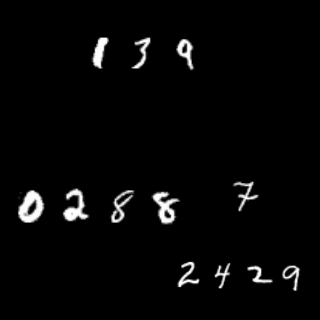 139
0288 7
2429